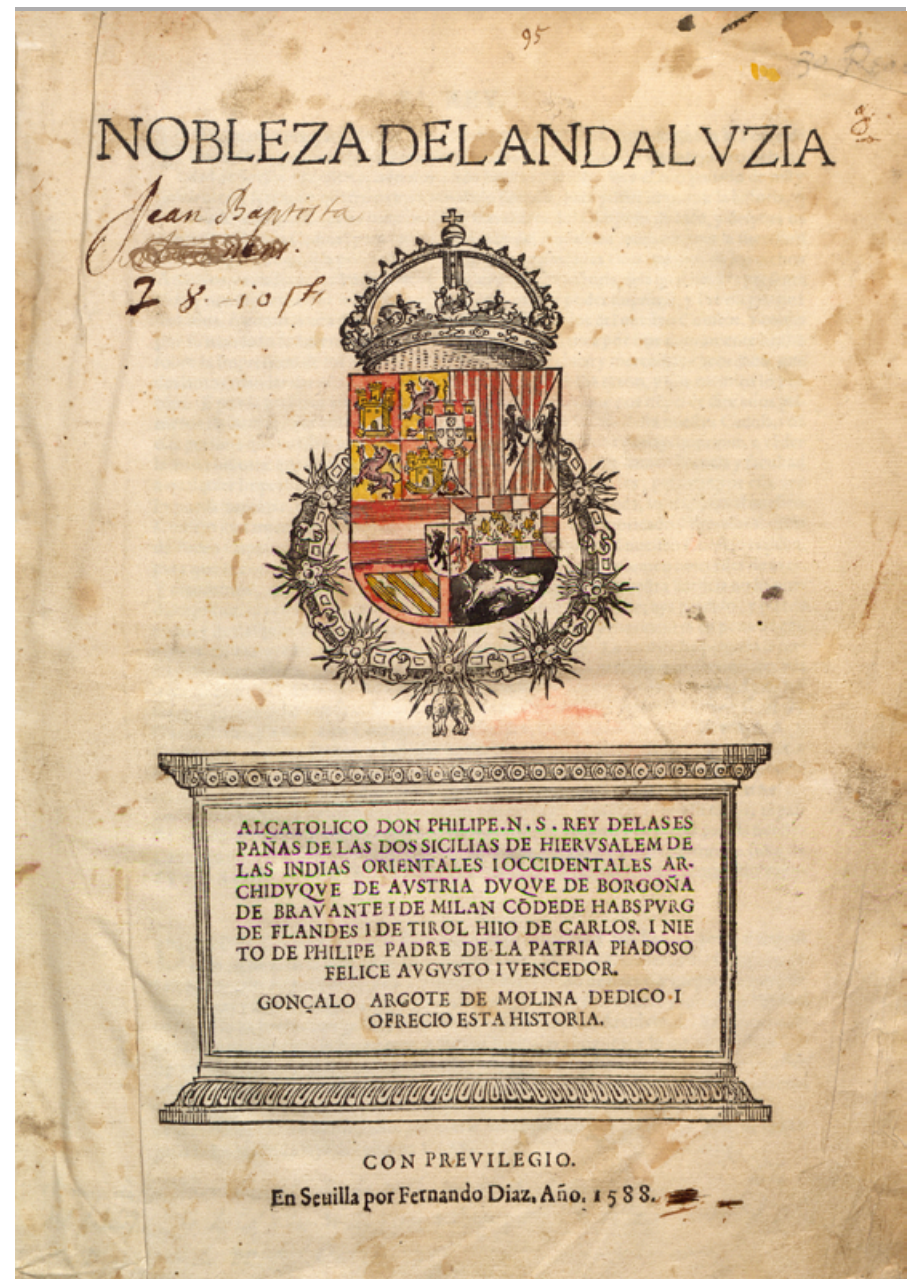 95
NOBLEZA DEL ANDALVZIA
Jean Baptista
ALCATOLICO DON PHILIPE.N.S. REY DELAS ES
PAÑAS DE LAS DOS SICILIAS DE HIERVSALEM DE
LAS INDIAS ORIENTALES I OCCIDENTALES AR-
CHIDVQVE DE AVSTRIA DVQVE DE BORGOÑA
DE BRAVANTE I DE MILAN CÕDE DE HABSPVRG
DE FLANDES I DE TIROL HIIO DE CARLOS. I NIE
TO DE PHILIPE PADRE DE LA PATRIA PIADOSO
FELICE AVGVSTO I VENCEDOR.
GONÇALO ARGOTE DE MOLINA DEDICO I
OFRECIO ESTA HISTORIA.
CON PREVILEGIO.
En Seuilla por Fernando Diaz. Año. 1588.